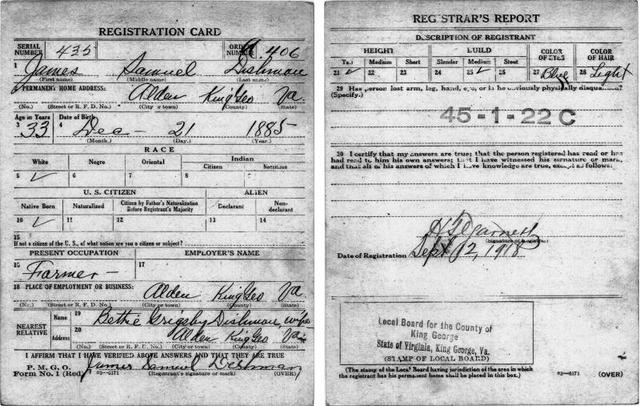 REGISTRATION CARD
SERIAL NUMBER 435 ORDER NUMBER A 406
1 James Samuel Dishman
(First name) (Middle name) (Last name)
2 PERMANENT HOME ADDRESS:
Alden King Geo Va.
(No.) (Street or R. F. D. No.) (City or town) (County) (State)
Age in Years Date of Birth
3 33 4 Dec - 21 1885
(Month.) (Day.) (Year.)
RACE
White Negro Oriental Indian
Citizen Noncitizen
5 ✓ 6 7 8 9
U. S. CITIZEN ALIEN
Native Born Naturalized Citizen by Father's Naturalization Before Registrant's Majority Declarant Non-declarant
10 ✓ 11 12 13 14
15
If not a citizen of the U. S., of what nation are you a citizen or subject?
PRESENT OCCUPATION EMPLOYER'S NAME
16 Farmer - 17
18 PLACE OF EMPLOYMENT OR BUSINESS:
Alden King Geo Va
(No.) (Street or R. F. D. No.) (City or town) (County) (State)
NEAREST RELATIVE Name 19 Bettie Grigsby Dishman wife
Address 20 Alden King Geo Va
(No.) (Street or R. F. D. No.) (City or town) (County) (State)
I AFFIRM THAT I HAVE VERIFIED ABOVE ANSWERS AND THAT THEY ARE TRUE
P. M. G. O.
Form No. 1 (Red) James Samuel Dishman
(Registrant's signature or mark) (OVER)
REGISTRAR'S REPORT
DESCRIPTION OF REGISTRANT
HEIGHT BUILD COLOR OF EYES COLOR OF HAIR
Tall Medium Short Slender Medium Stout
21 ✓ 22 23 24 25 ✓ 26 27 Blue 28 Light
29 Has person lost arm, leg, hand, eye, or is he obviously physically disqualified?
(Specify.)
45-1-22 C
30 I certify that my answers are true; that the person registered has read or has
had read to him his own answers; that I have witnessed his signature or mark,
and that all of his answers of which I have knowledge are true, except as follows:
(Signature of Registrar)
Date of Registration Sept 12, 1918
Local Board for the County of
King George
State of Virginia, King George, Va.
(STAMP OF LOCAL BOARD)
(The stamp of the Local Board having jurisdiction of the area in which
the registrant has his permanent home shall be placed in this box.)
(OVER)